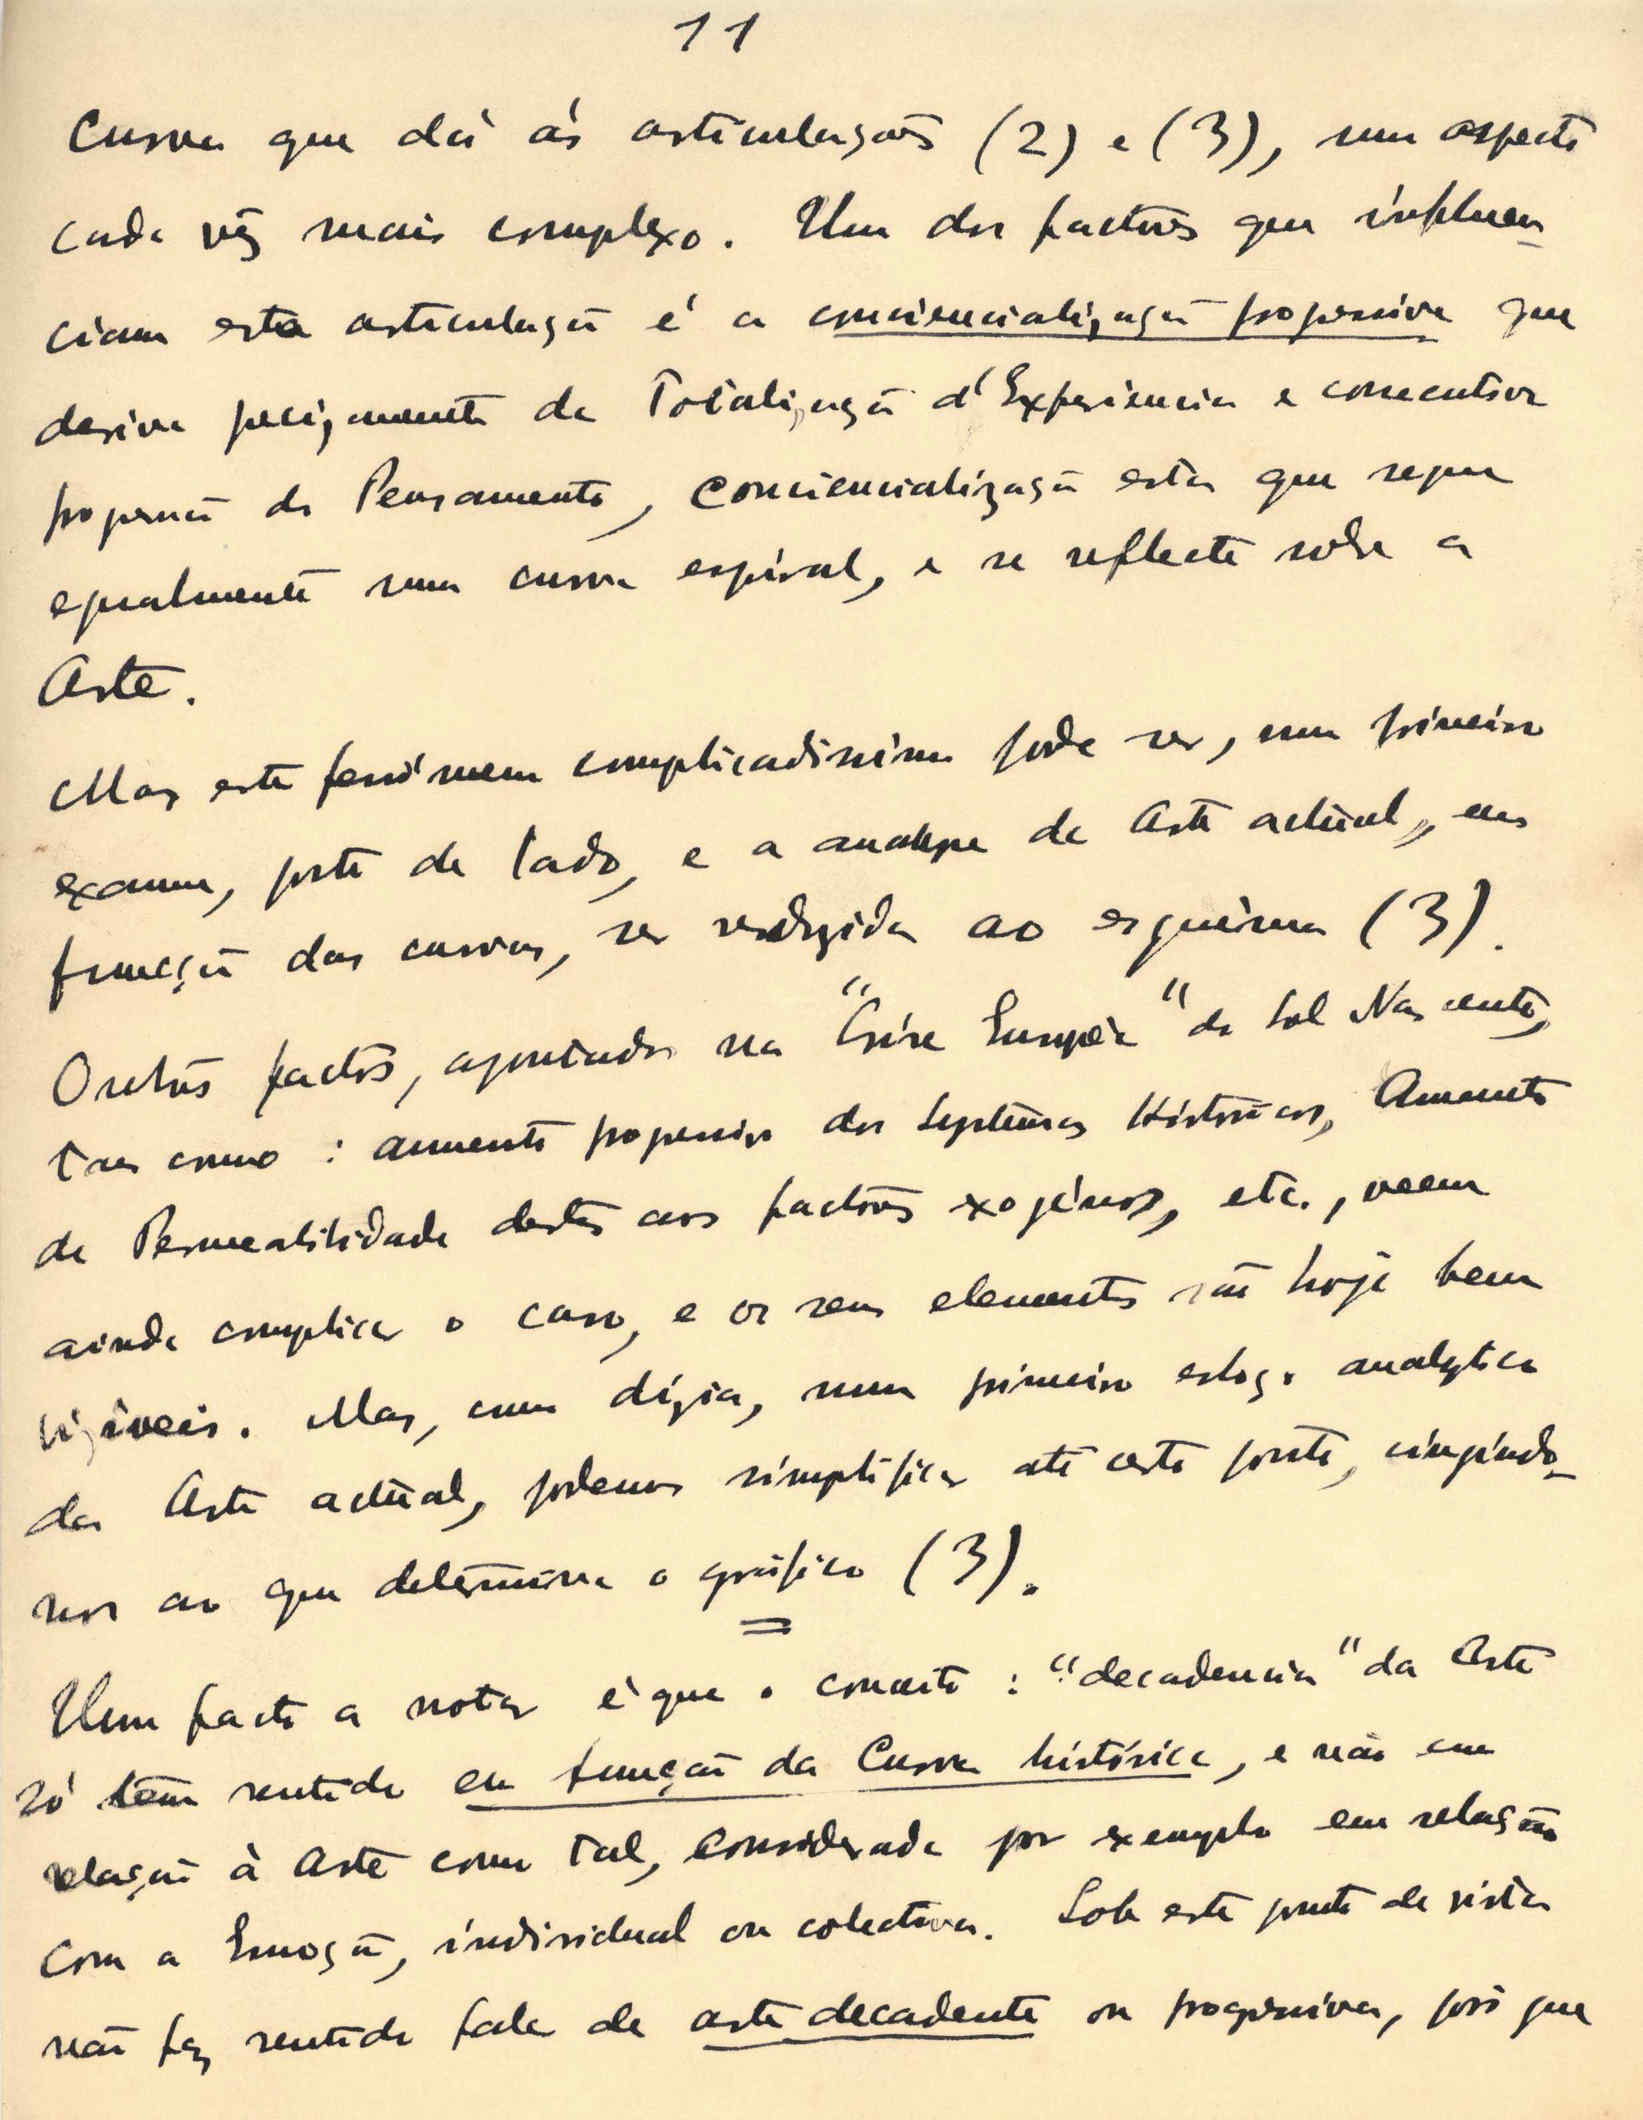 11
Curva que dá ás articulações (2) e (3), um aspecto
cada vêz mais complexo. Um dos factores que influen-
ciam esta articulação é a conciencialização progressiva que
deriva da Totalização d'Experiencia e consecutiva
progressão do Pensamento, conciencialização esta que segue
egualmente uma curva espiral, e se reflecte sobre a
Arte.
Mas este fenómeno complicadissimo pode ser, num primeiro
exame, posto de lado, e a analyse da Arte actual, em
função das curvas, ser reduzida ao esquema (3).
Outros factos, apontados na "Crise Europêa" do Sol Nascente,
taes como : aumento progressivo dos Systemas Históricos, Aumento
da Permeabilidade destes aos factores exogénos, etc., veem
ainda complicar o caso, e os seus elementos são hoje bem
visiveis. Mas, como dizia, num primeiro esboço analytico
da Arte actual, podemos simplificar até certo ponto, cingindo-
nos ao que determina o gráfico (3).
Um facto a notar é que o conceito : "decadencia" da Arte
só têm sentido em função da Curva histórica, e não em
relação à Arte como tal, considerada por exemplo em relação
com a Emoção, individual ou colectiva. Sob este ponto de vista
não faz sentido falar de arte decadente ou progressiva, pois que